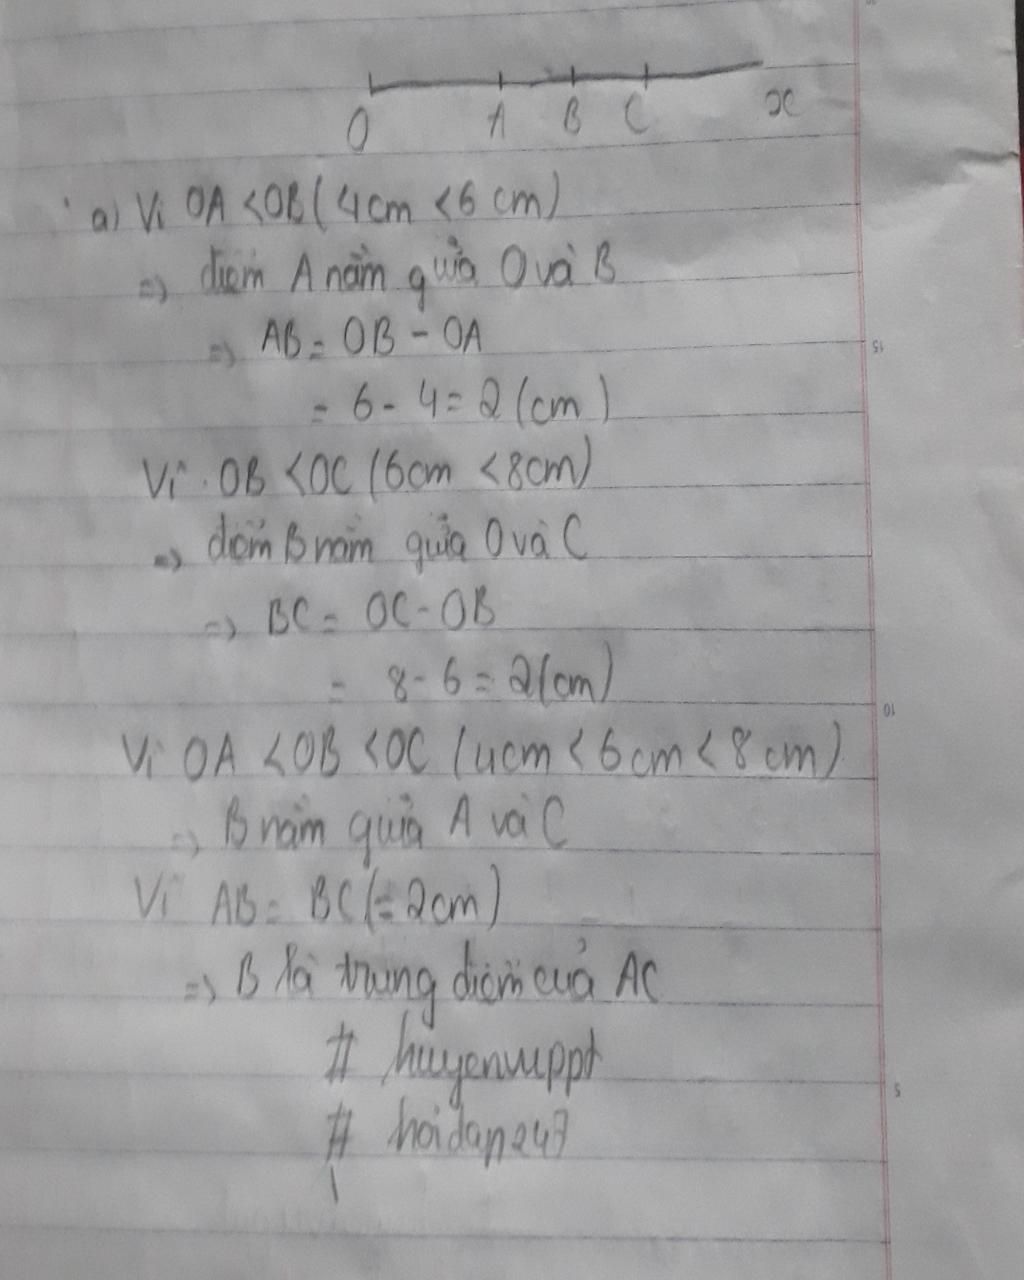 O A B C x
a) Vì OA < OB ( 4cm < 6 cm )
=> điểm A nằm giữa O và B
=> AB = OB - OA
= 6 - 4 = 2 (cm)
Vì OB < OC (6cm < 8cm)
=> điểm B nằm giữa O và C
=> BC = OC - OB
= 8 - 6 = 2 (cm)
Vì OA < OB < OC (4cm < 6cm < 8cm)
=> B nằm giữa A và C
Vì AB = BC (= 2cm)
=> B là trung điểm của AC
# huyenvuppt
# hoidap247
15
10
5